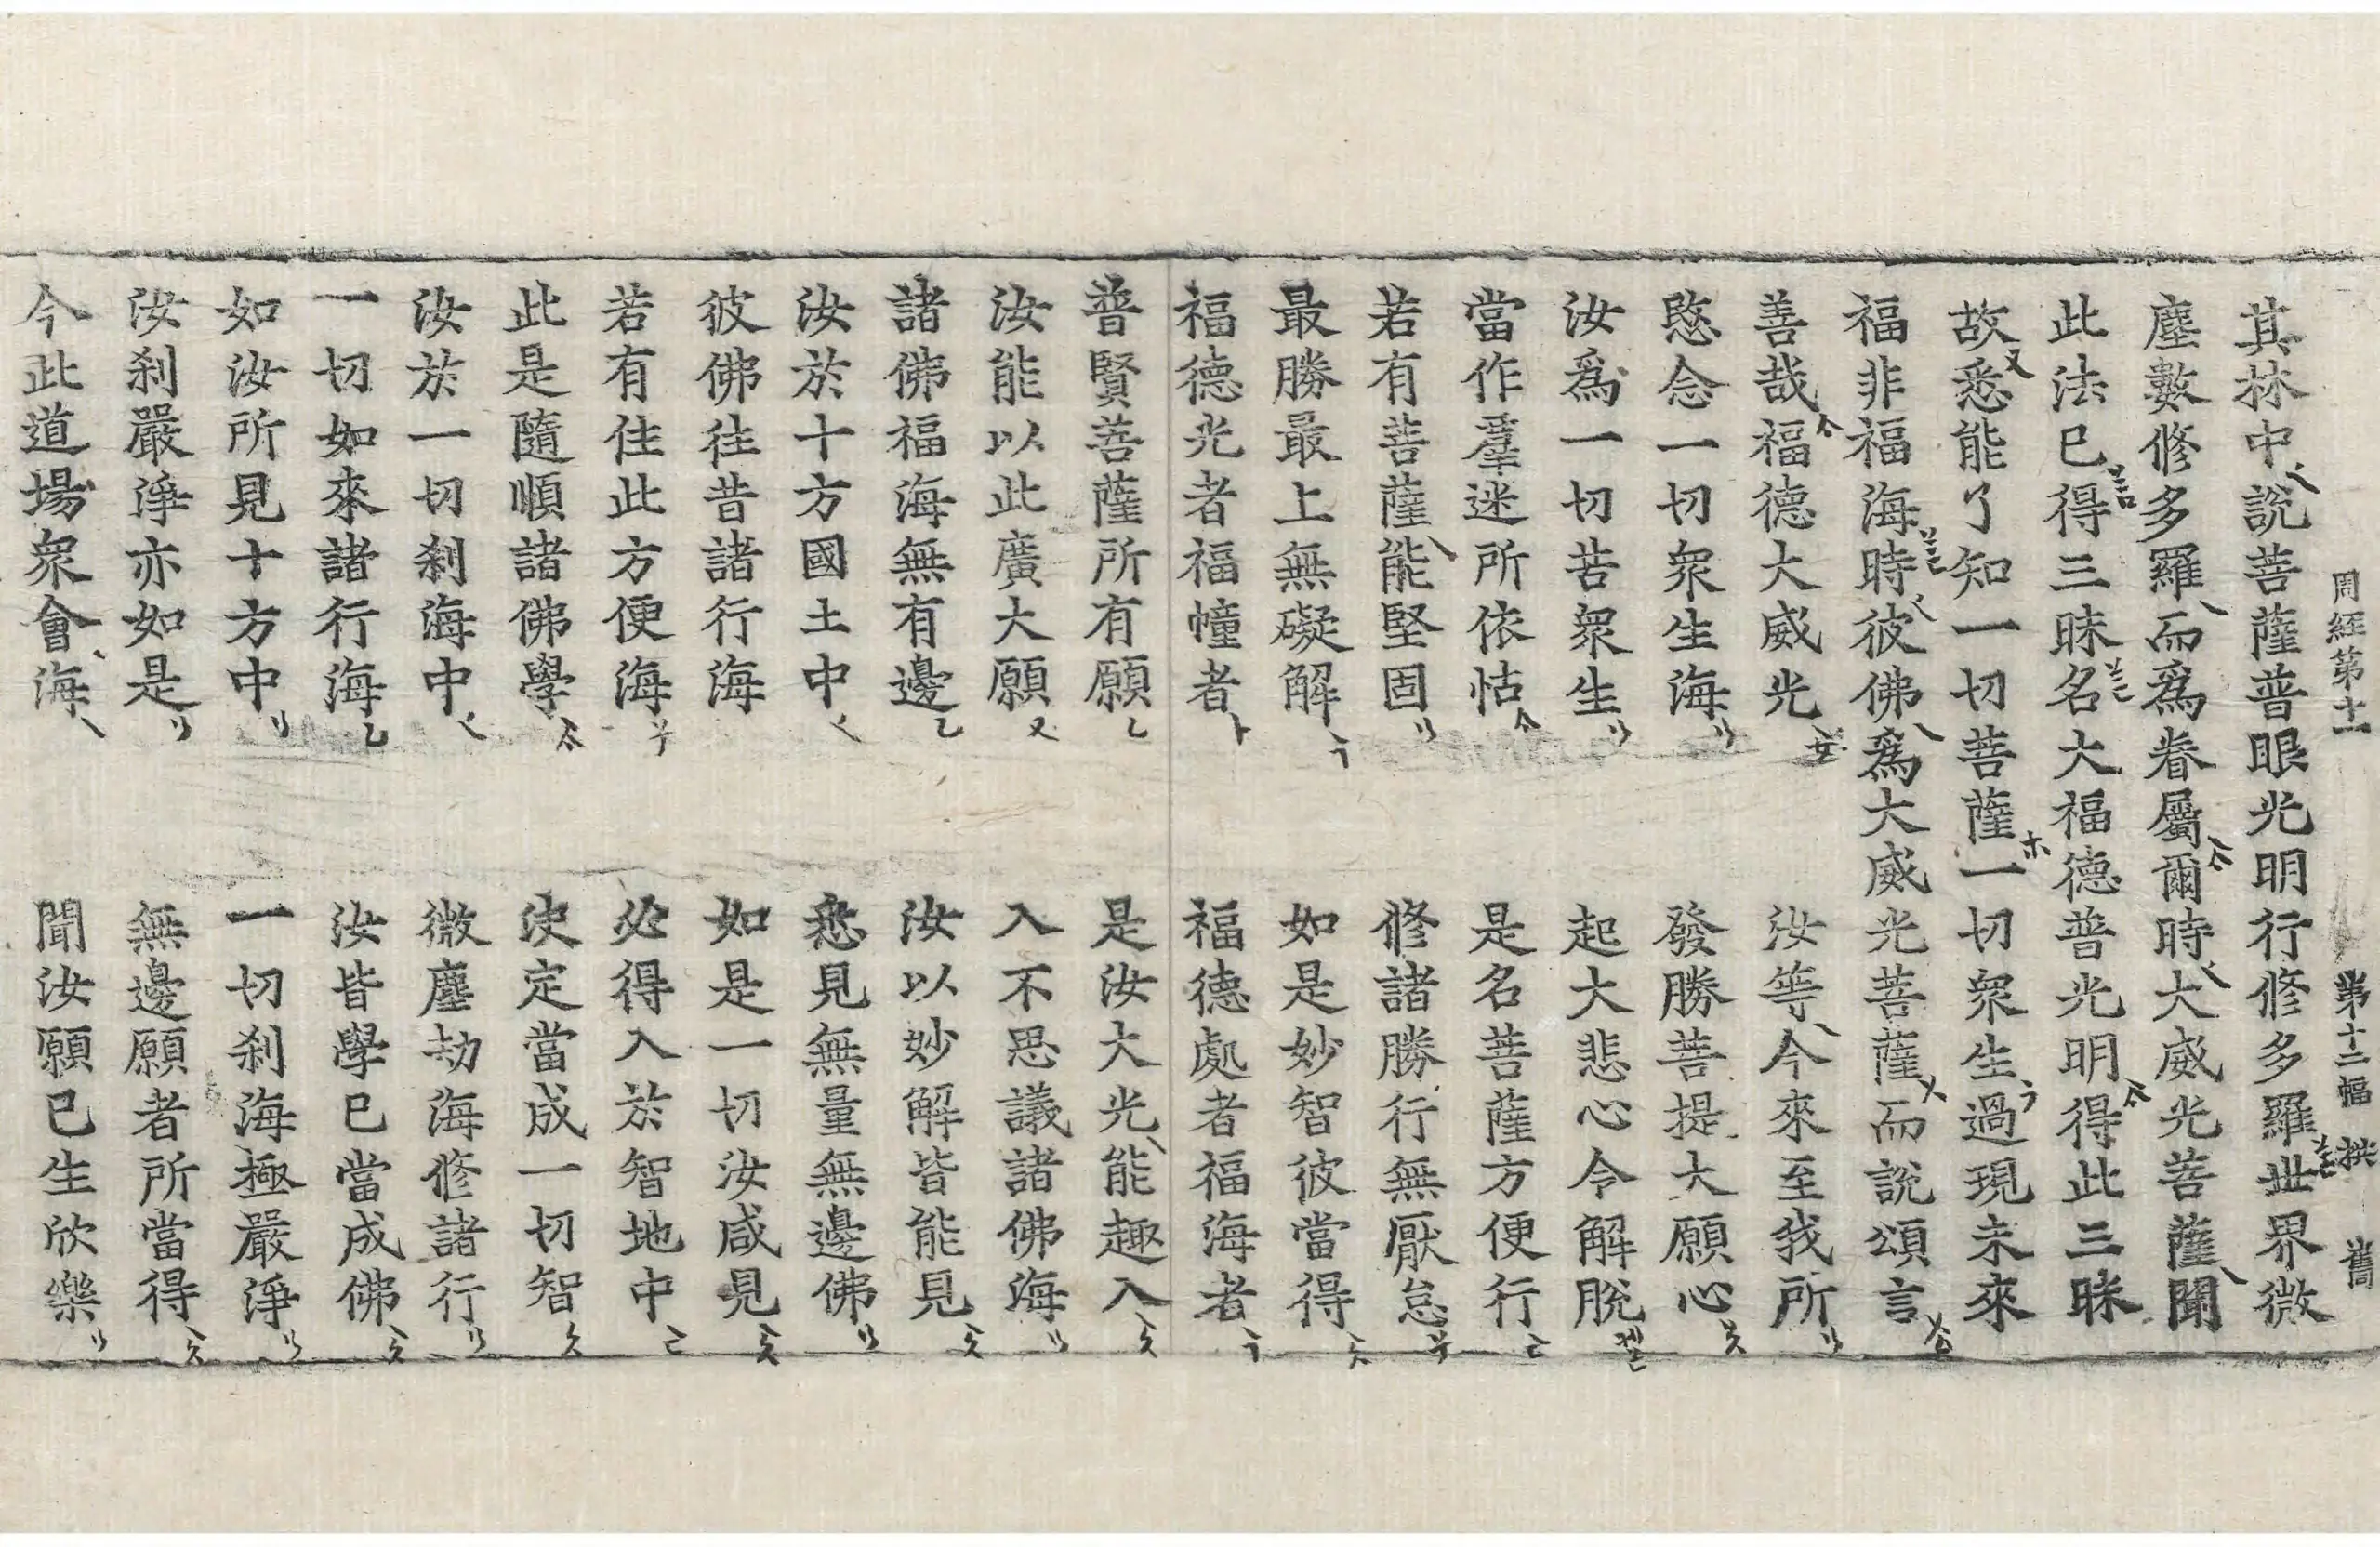 周経第十一 第十二幅 拱 舊
其林中說菩薩普眼光明行修多羅世界微
塵數修多羅而爲眷屬爾時大威光菩薩聞
此法已得三昧名大福德普光明得此三昧
故悉能了知一切菩薩一切衆生過現未來
福非福海時彼佛爲大威光菩薩而說頌言
善哉福德大威光 汝等今來至我所
愍念一切衆生海 發勝菩提大願心
汝爲一切苦衆生 起大悲心令解脫
當作羣迷所依怙 是名菩薩方便行
若有菩薩能堅固 修諸勝行無厭怠
最勝最上無礙解 如是妙智彼當得
福德光者福幢者 福德處者福海者
普賢菩薩所有願 是汝大光能趣入
汝能以此廣大願 入不思議諸佛海
諸佛福海無有邊 汝以妙解皆能見
汝於十方國土中 悉見無量無邊佛
彼佛往昔諸行海 如是一切汝咸見
若有住此方便海 必得入於智地中
此是隨順諸佛學 決定當成一切智
汝於一切刹海中 微塵劫海修諸行
一切如來諸行海 汝皆學已當成佛
如汝所見十方中 一切刹海極嚴淨
汝刹嚴淨亦如是 無邊願者所當得
今此道場衆會海 聞汝願已生欣樂